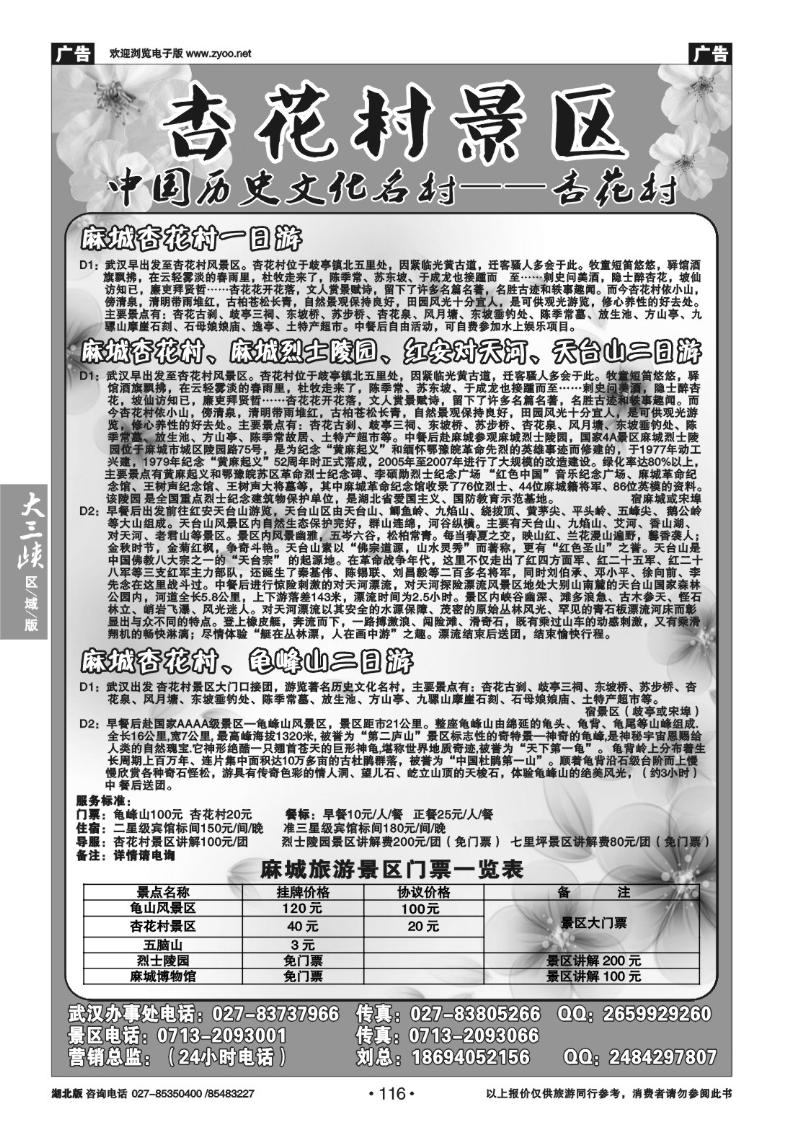 广告
欢迎浏览电子版 www.zyoo.net
广告
杏花村景区
中国历史文化名村——杏花村
麻城杏花村一日游
D1：武汉早出发至杏花村风景区。杏花村位于歧亭镇北五里处，因紧临光黄古道，迁客骚人多会于此。牧童短笛悠悠，驿馆酒
旗飘拂，在云轻雾淡的春雨里，杜牧走来了，陈季常、苏东坡、于成龙也接踵而　至……刺史问美酒，隐士醉杏花，坡仙
访知已，廉吏拜贤哲……杏花花开花落，文人赏景赋诗，留下了许多名篇名著，名胜古迹和轶事趣闻。而今杏花村依小山，
傍清泉，清明带雨堆红，古柏苍松长青，自然景观保持良好，田园风光十分宜人，是可供观光游览，修心养性的好去处。
主要景点有：杏花古刹、歧亭三祠、东坡桥、苏步桥、杏花泉、风月塘、东坡垂钓处、陈季常墓、放生池、方山亭、九
骡山摩崖石刻、石母娘娘庙、逸亭、土特产超市。中餐后自由活动，可自费参加水上娱乐项目。
麻城杏花村、麻城烈士陵园、红安对天河、天台山二日游
D1：武汉早出发至杏花村风景区。杏花村位于歧亭镇北五里处，因紧临光黄古道，迁客骚人多会于此。牧童短笛悠悠，驿
馆酒旗飘拂，在云轻雾淡的春雨里，杜牧走来了，陈季常、苏东坡、于成龙也接踵而至……刺史问美酒，隐士醉杏
花，坡仙访知已，廉吏拜贤哲……杏花花开花落，文人赏景赋诗，留下了许多名篇名著，名胜古迹和轶事趣闻。而
今杏花村依小山，傍清泉，清明带雨堆红，古柏苍松长青，自然景观保持良好，田园风光十分宜人，是可供观光游
览，修心养性的好去处。主要景点有：杏花古刹、歧亭三祠、东坡桥、苏步桥、杏花泉、风月塘、东坡垂钓处、陈
季常墓、放生池、方山亭、陈季常故居、土特产超市等。中餐后赴麻城参观麻城烈士陵园，国家4A景区麻城烈士陵
园位于麻城市城区陵园路75号，是为纪念“黄麻起义”和缅怀鄂豫皖革命先烈的英雄事迹而修建的，于1977年动工
兴建，1979年纪念“黄麻起义”52周年时正式落成，2005年至2007年进行了大规模的改造建设。绿化率达80%以上，
主要景点有黄麻起义和鄂豫皖苏区革命烈士纪念碑、李硕勋烈士纪念广场“红色中国”音乐纪念广场、麻城革命纪
念馆、王树声纪念馆、王树声大将墓等，其中麻城革命纪念馆收录了76位烈士、44位麻城籍将军、86位英模的资料。
该陵园 是全国重点烈士纪念建筑物保护单位，是湖北省爱国主义、国防教育示范基地。　宿麻城或宋埠
D2：早餐后出发前往红安天台山游览，天台山区由天台山、鲫鱼岭、九焰山、绕拔顶、黄茅尖、平头岭、五峰尖、鹅公岭
等大山组成。天台山风景区内自然生态保护完好，群山连绵，河谷纵横。主要有天台山、九焰山、艾河、香山湖、
对天河、老君山等景区。景区内风景幽雅，五岑六谷，松柏常青。每当春夏之交，映山红、兰花漫山遍野，馨香袭人；
金秋时节，金菊红枫，争奇斗艳。天台山素以“佛宗道源，山水灵秀”而著称，更有“红色圣山”之誉。天台山是
中国佛教八大宗之一的“天台宗” 的起源地。在革命战争年代，这里不仅走出了红四方面军、红二十五军、红二十
八军等三支红军主力部队，还诞生了秦基伟、陈锡联、刘昌毅等二百多名将军，同时刘伯承、邓小平、徐向前、李
先念在这里战斗过。中餐后进行惊险刺激的对天河漂流，对天河探险漂流风景区地处大别山南麓的天台山国家森林
公园内，河道全长5.8公里，上下游落差143米，漂流时间为2.5小时。景区内峡谷幽深、滩多浪急、古木参天、怪石
林立、峭岩飞瀑、风光迷人。对天河漂流以其安全的水源保障、茂密的原始丛林风光、罕见的青石板漂流河床而彰
显出与众不同的特点。登上橡皮艇，奔流而下，一路搏激浪、闯险滩、滑奇石，既有乘过山车的动感刺激，又有乘滑
翔机的畅快淋漓；尽情体验“艇在丛林漂，人在画中游”之趣。漂流结束后送团，结束愉快行程。
麻城杏花村、龟峰山二日游
D1：武汉出发 杏花村景区大门口接团，游览著名历史文化名村，主要景点有：杏花古刹、歧亭三祠、东坡桥、苏步桥、杏
花泉、风月塘、东坡垂钓处、陈季常墓、放生池、方山亭、九骡山摩崖石刻、石母娘娘庙、土特产超市等。
宿景区（歧亭或宋埠）
D2：早餐后赴国家AAAA级景区—龟峰山风景区，景区距市21公里。整座龟峰山由绵延的龟头、龟背、龟尾等山峰组成.
全长16公里,宽7公里,最高峰海拔1320米,被誉为“第二庐山”景区标志性的奇特景—神奇的龟峰,是神秘宇宙恩赐给
人类的自然瑰宝.它神形绝酷一只翘首苍天的巨形神龟,堪称世界地质奇迹,被誉为“天下第一龟”。龟背岭上分布着生
长周期上百万年、连片集中面积达10万多亩的古杜鹃群落，被誉为“中国杜鹃第一山”。顺着龟背沿石级台阶而上慢
慢欣赏各种奇石怪松，游具有传奇色彩的情人洞、望儿石、屹立山顶的天梭石，体验龟峰山的绝美风光，（约3小时）
中 餐后送团。
服务标准：
门票：龟峰山100元 杏花村20元　餐标：早餐10元/人/餐　正餐25元/人/餐
住宿：二星级宾馆标间150元/间/晚　准三星级宾馆标间180元/间/晚
导服：杏花村景区讲解100元/团　烈士陵园景区讲解费200元/团（免门票）　七里坪景区讲解费80元/团（免门票）
备注：详情请电询
麻城旅游景区门票一览表
景点名称　挂牌价格　协议价格　备　注
龟山风景区　120 元　100元
杏花村景区　40 元　20 元　景区大门票
五脑山　3 元
烈士陵园　免门票　景区讲解 200 元
麻城博物馆　免门票　景区讲解 100 元
武汉办事处电话：027-83737966　传真：027-83805266　QQ：2659929260
景区电话：0713-2093001　传真：0713-2093066
营销总监：（24小时电话）　刘总：18694052156　QQ：2484297807
大三峡
区/域/版
湖北版 咨询电话 027-85350400 /85483227
·116·
以上报价仅供旅游同行参考，消费者请勿参阅此书